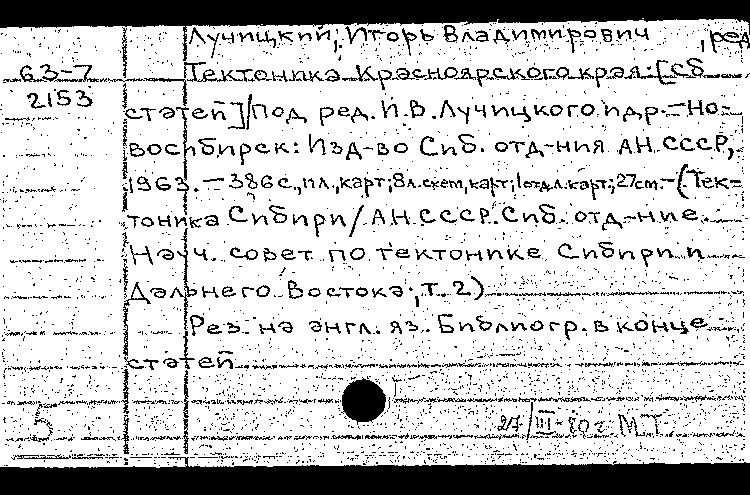 Лучицкий, Игорь Владимирович, ред.
63-7 Тектоника Красноярского края: [Сб.
2153
статей]/Под ред. И.В.Лучицкого и др.-Но-
восибирск: Изд-во Сиб. отд-ния АН СССР,
1963.-386с., ил., карт; 8л.схем, карт; 1отд.л.карт; 27см.-(Тек-
тоника Сибири/АН СССР. Сиб. отд-ние.
Науч. совет по тектонике Сибири и
Дальнего Востока; т. 2)
Рез. на англ. яз. Библиогр. в конце
статей
5
2/7 III-80г. М.Т.